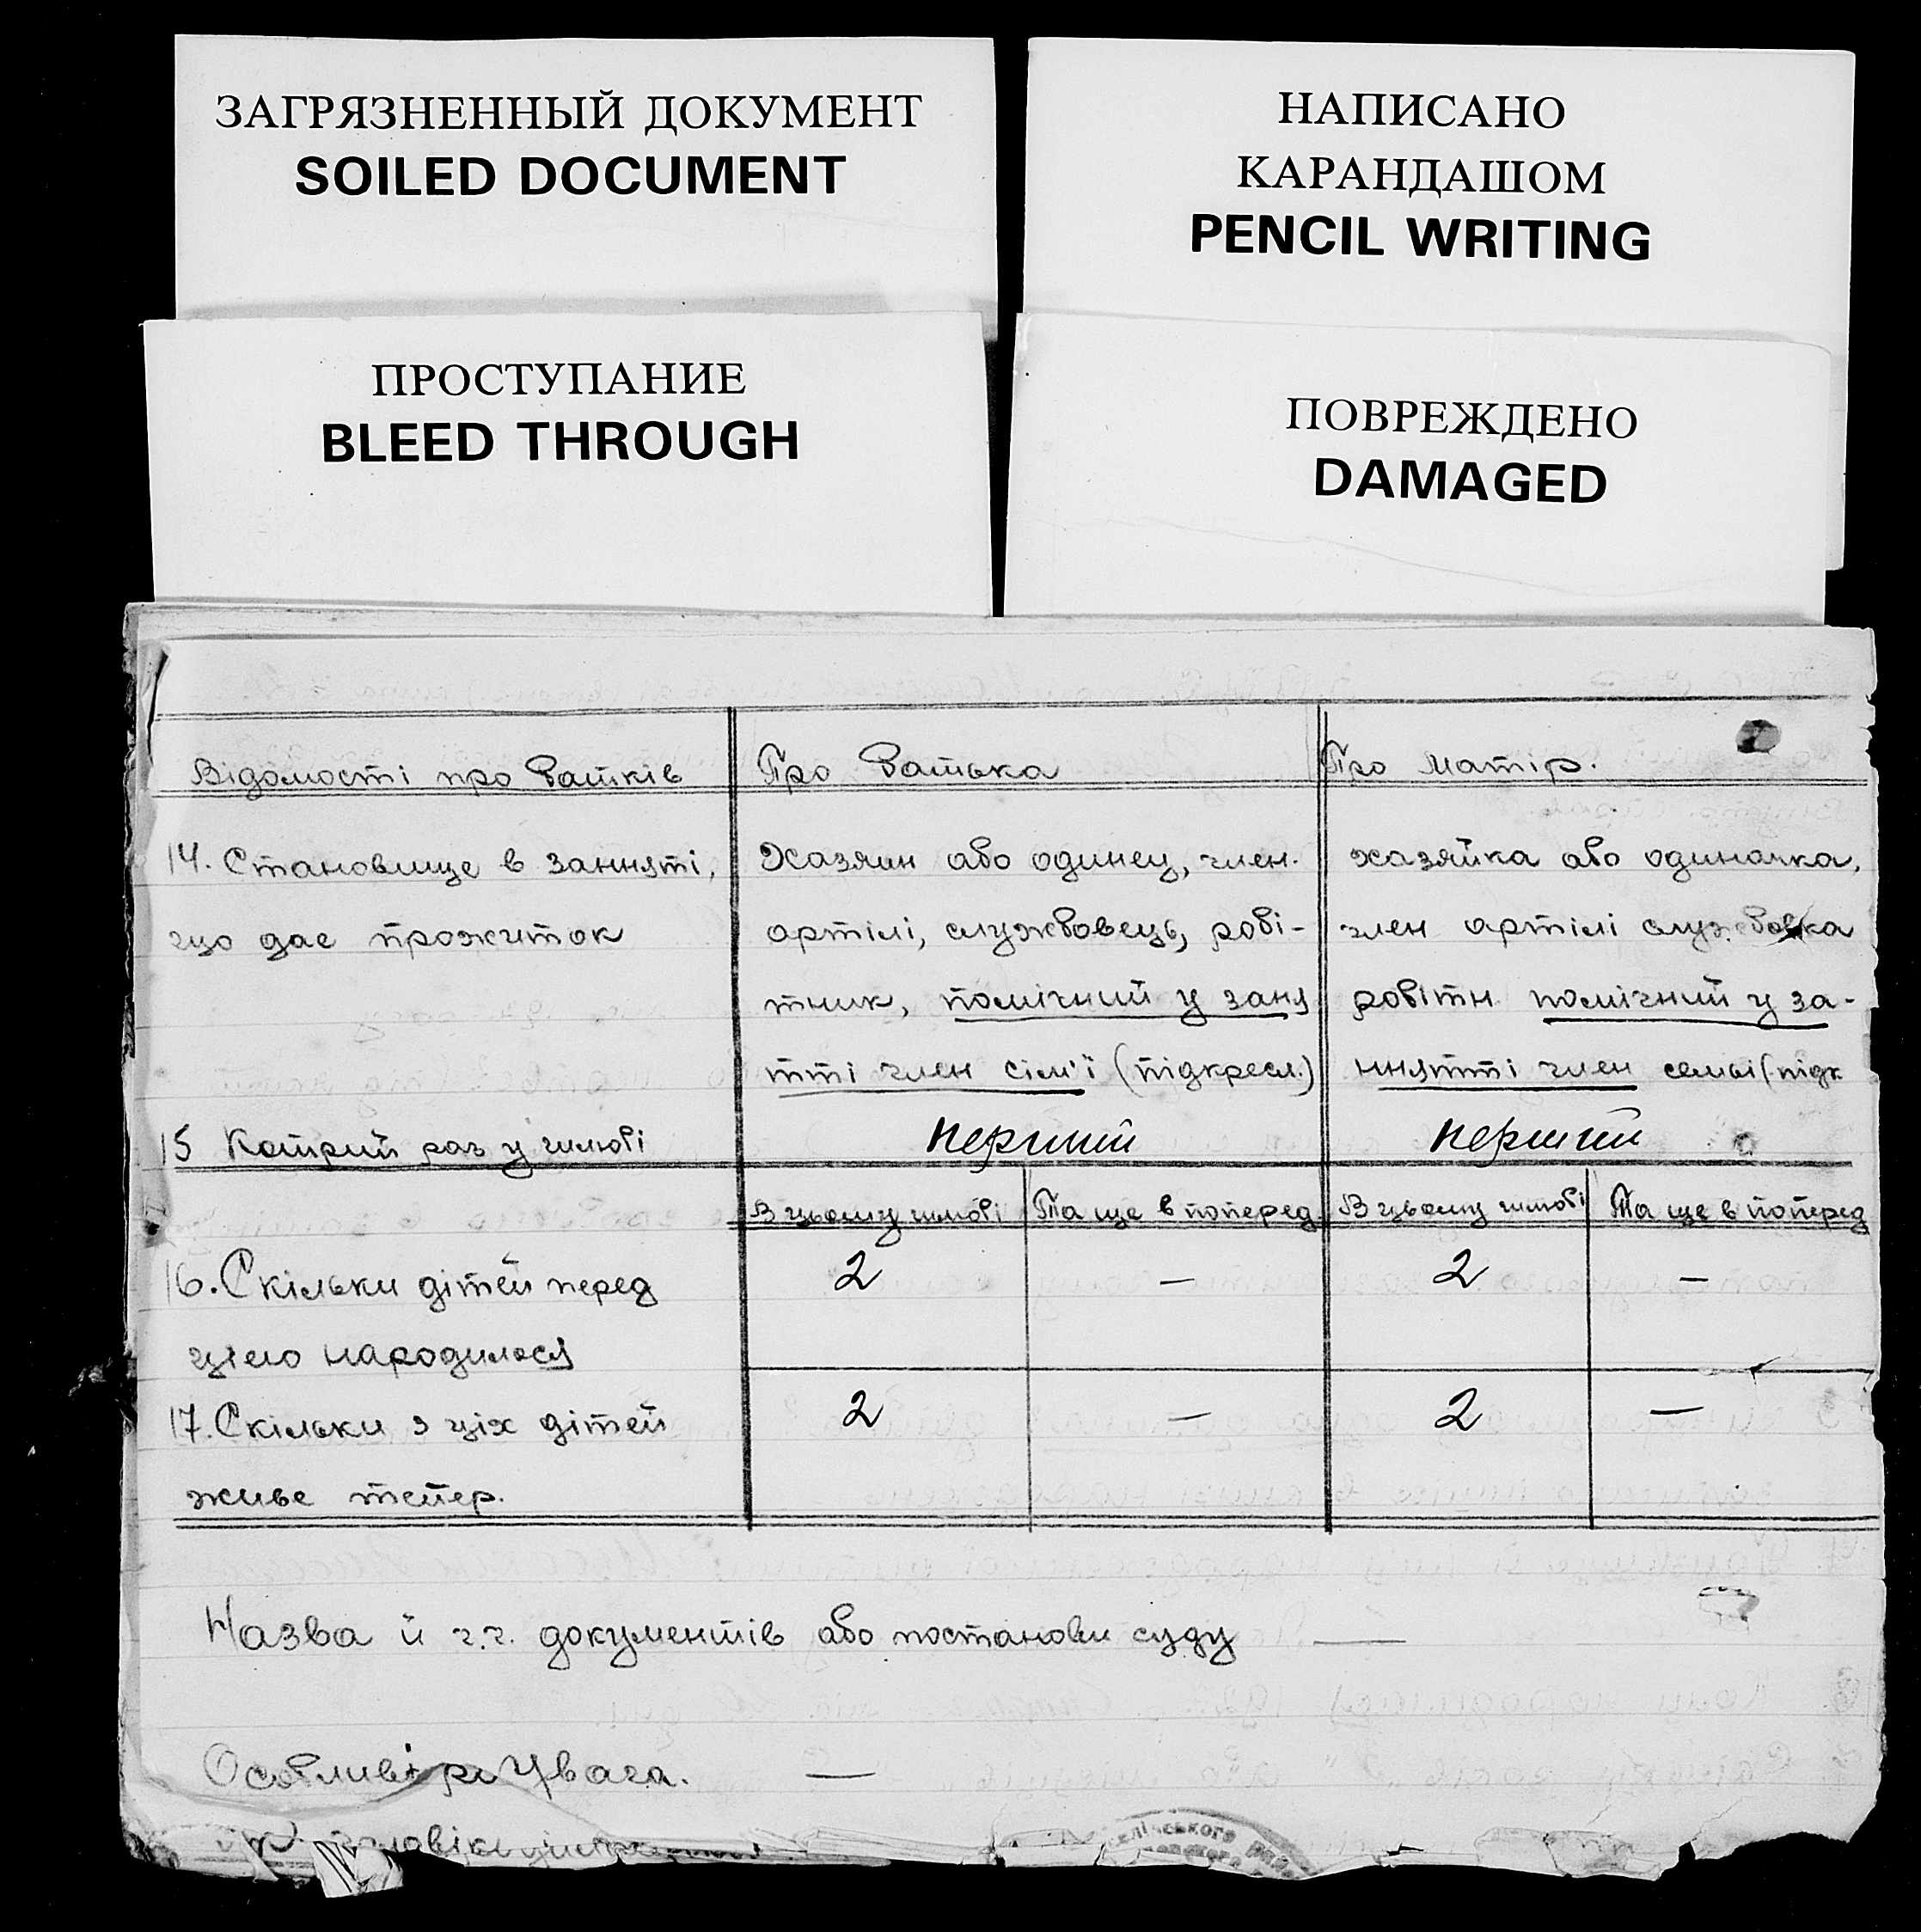 ЗАГРЯЗНЕННЫЙ ДОКУМЕНТ
SOILED DOCUMENT
НАПИСАНО
КАРАНДАШОМ
PENCIL WRITING
ПРОСТУПАНИЕ
BLEED THROUGH
ПОВРЕЖДЕНО
DAMAGED
Відомості про батків
Про батька
Про матір.
14. Становище в занняті,
що дає прожиток
Хазяин або одинец, член.
артілі, службовець, робі-
тник, помічний у заня
тті член сім'ї (підкресл.)
хазяйка або одиначка,
член артілі службовка
робітн помічний у за-
нняттi член семьі (підк
15 Котрий раз у шлюбі
перший
перший
В цьому шлюбі
Та ще в поперед
В цьому шлюбі
Та ще в поперед
16. Скільки дітей перед
цією народилося
2
—
2
—
17. Скільки з ціх дітей
живе тепер.
2
—
2
—
Назва й ч.ч. документів або постанови суду —
Особливі Увага. —